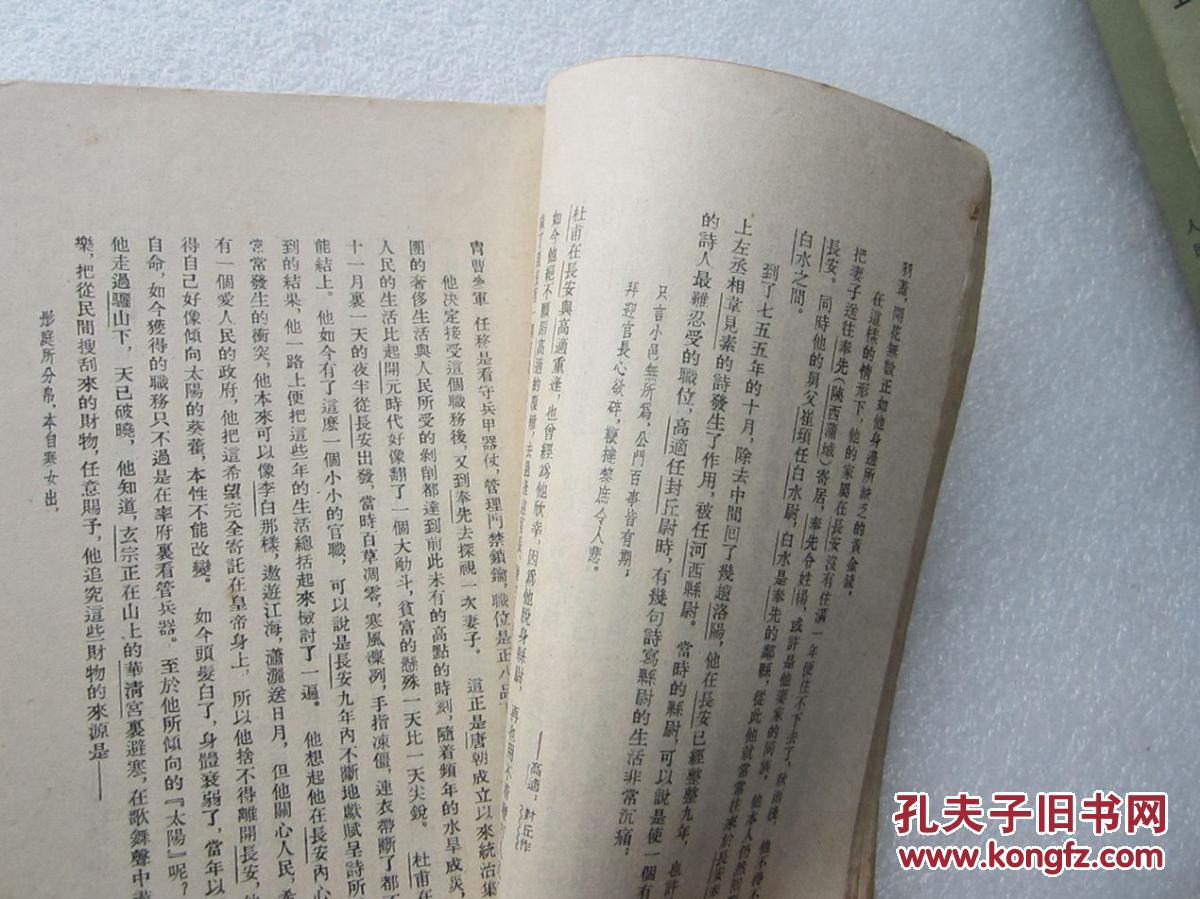 羽蓋，開花無數正如他身邊所缺乏的黃金錢。
在這樣的情形下，他的家屬在長安沒有住滿一年便住不下去了，秋雨後，他不得不
把妻子送往奉先（陝西蒲城）寄居，奉先令姓楊，或許是他妻家的同族。他本人仍然
長安。同時他的舅父崔頊任白水尉，白水是奉先的鄰縣，從此他就常常往來於長安奉
白水之間。
到了七五五年的十月，除去中間回了幾趟洛陽，他在長安已經整整九年，也許
上左丞相韋見素的詩發生了作用，被任河西縣尉。當時的縣尉，可以說是使一個有
的詩人最難忍受的職位，高適任封丘尉時，有幾句詩寫縣尉的生活非常沉痛：
只言小邑無所爲，公門百事皆有期；
拜迎官長心欲碎，鞭撻黎庶令人悲。
——高適：封丘作
杜甫在長安與高適重逢，也曾經爲他欣幸，因爲他脫身縣尉，
如今他絕不願蹈高適的覆轍，去過逢迎官長、
冑曹參軍，任務是看守兵甲器仗，管理門禁鎖鑰，職位是正八品
他決定接受這個職務後，又到奉先去探視一次妻子。這正是唐朝成立以來統治集
團的奢侈生活與人民所受的剝削都達到前此未有的高點的時刻，隨着頻年的水旱成災，
人民的生活比起開元時代好像翻了一個大觔斗，貧富的懸殊一天比一天尖銳。杜甫在
十一月裏一天的夜半從長安出發，當時百草凋零，寒風凜冽，手指凍僵，連衣帶斷了都不
能結上。他如今有了這麽一個小小的官職，可以說是長安九年內不斷地獻賦呈詩所
到的結果，他一路上便把這些年的生活總括起來檢討了一遍。他想起他在長安內心
常常發生的衝突，他本來可以像李白那樣，遨遊江海，瀟灑送日月，但他關心人民，希
有一個愛人民的政府，他把這希望完全寄託在皇帝身上，所以他捨不得離開長安，他
得自己好像傾向太陽的葵藿，本性不能改變。如今頭髮白了，身體衰弱了，當年以
自命，如今獲得的職務只不過是在率府裏看管兵器。至於他所傾向的『太陽』呢？
他走過驪山下，天已破曉，他知道，玄宗正在山上的華清宮裏避寒，在歌舞聲中盡
樂，把從民間搜刮來的財物，任意賜予，他追究這些財物的來源是——
彤庭所分帛，本自寒女出，
人
孔夫子旧书网
www.kongfz.com